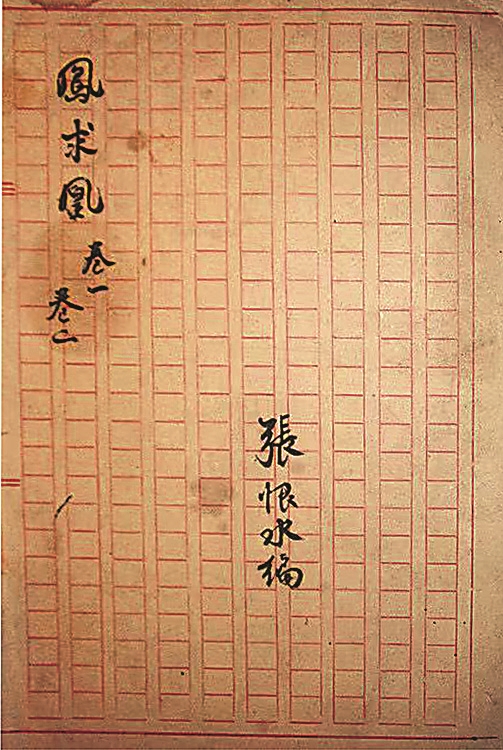 鳳求凰
卷一
卷二
張恨水編